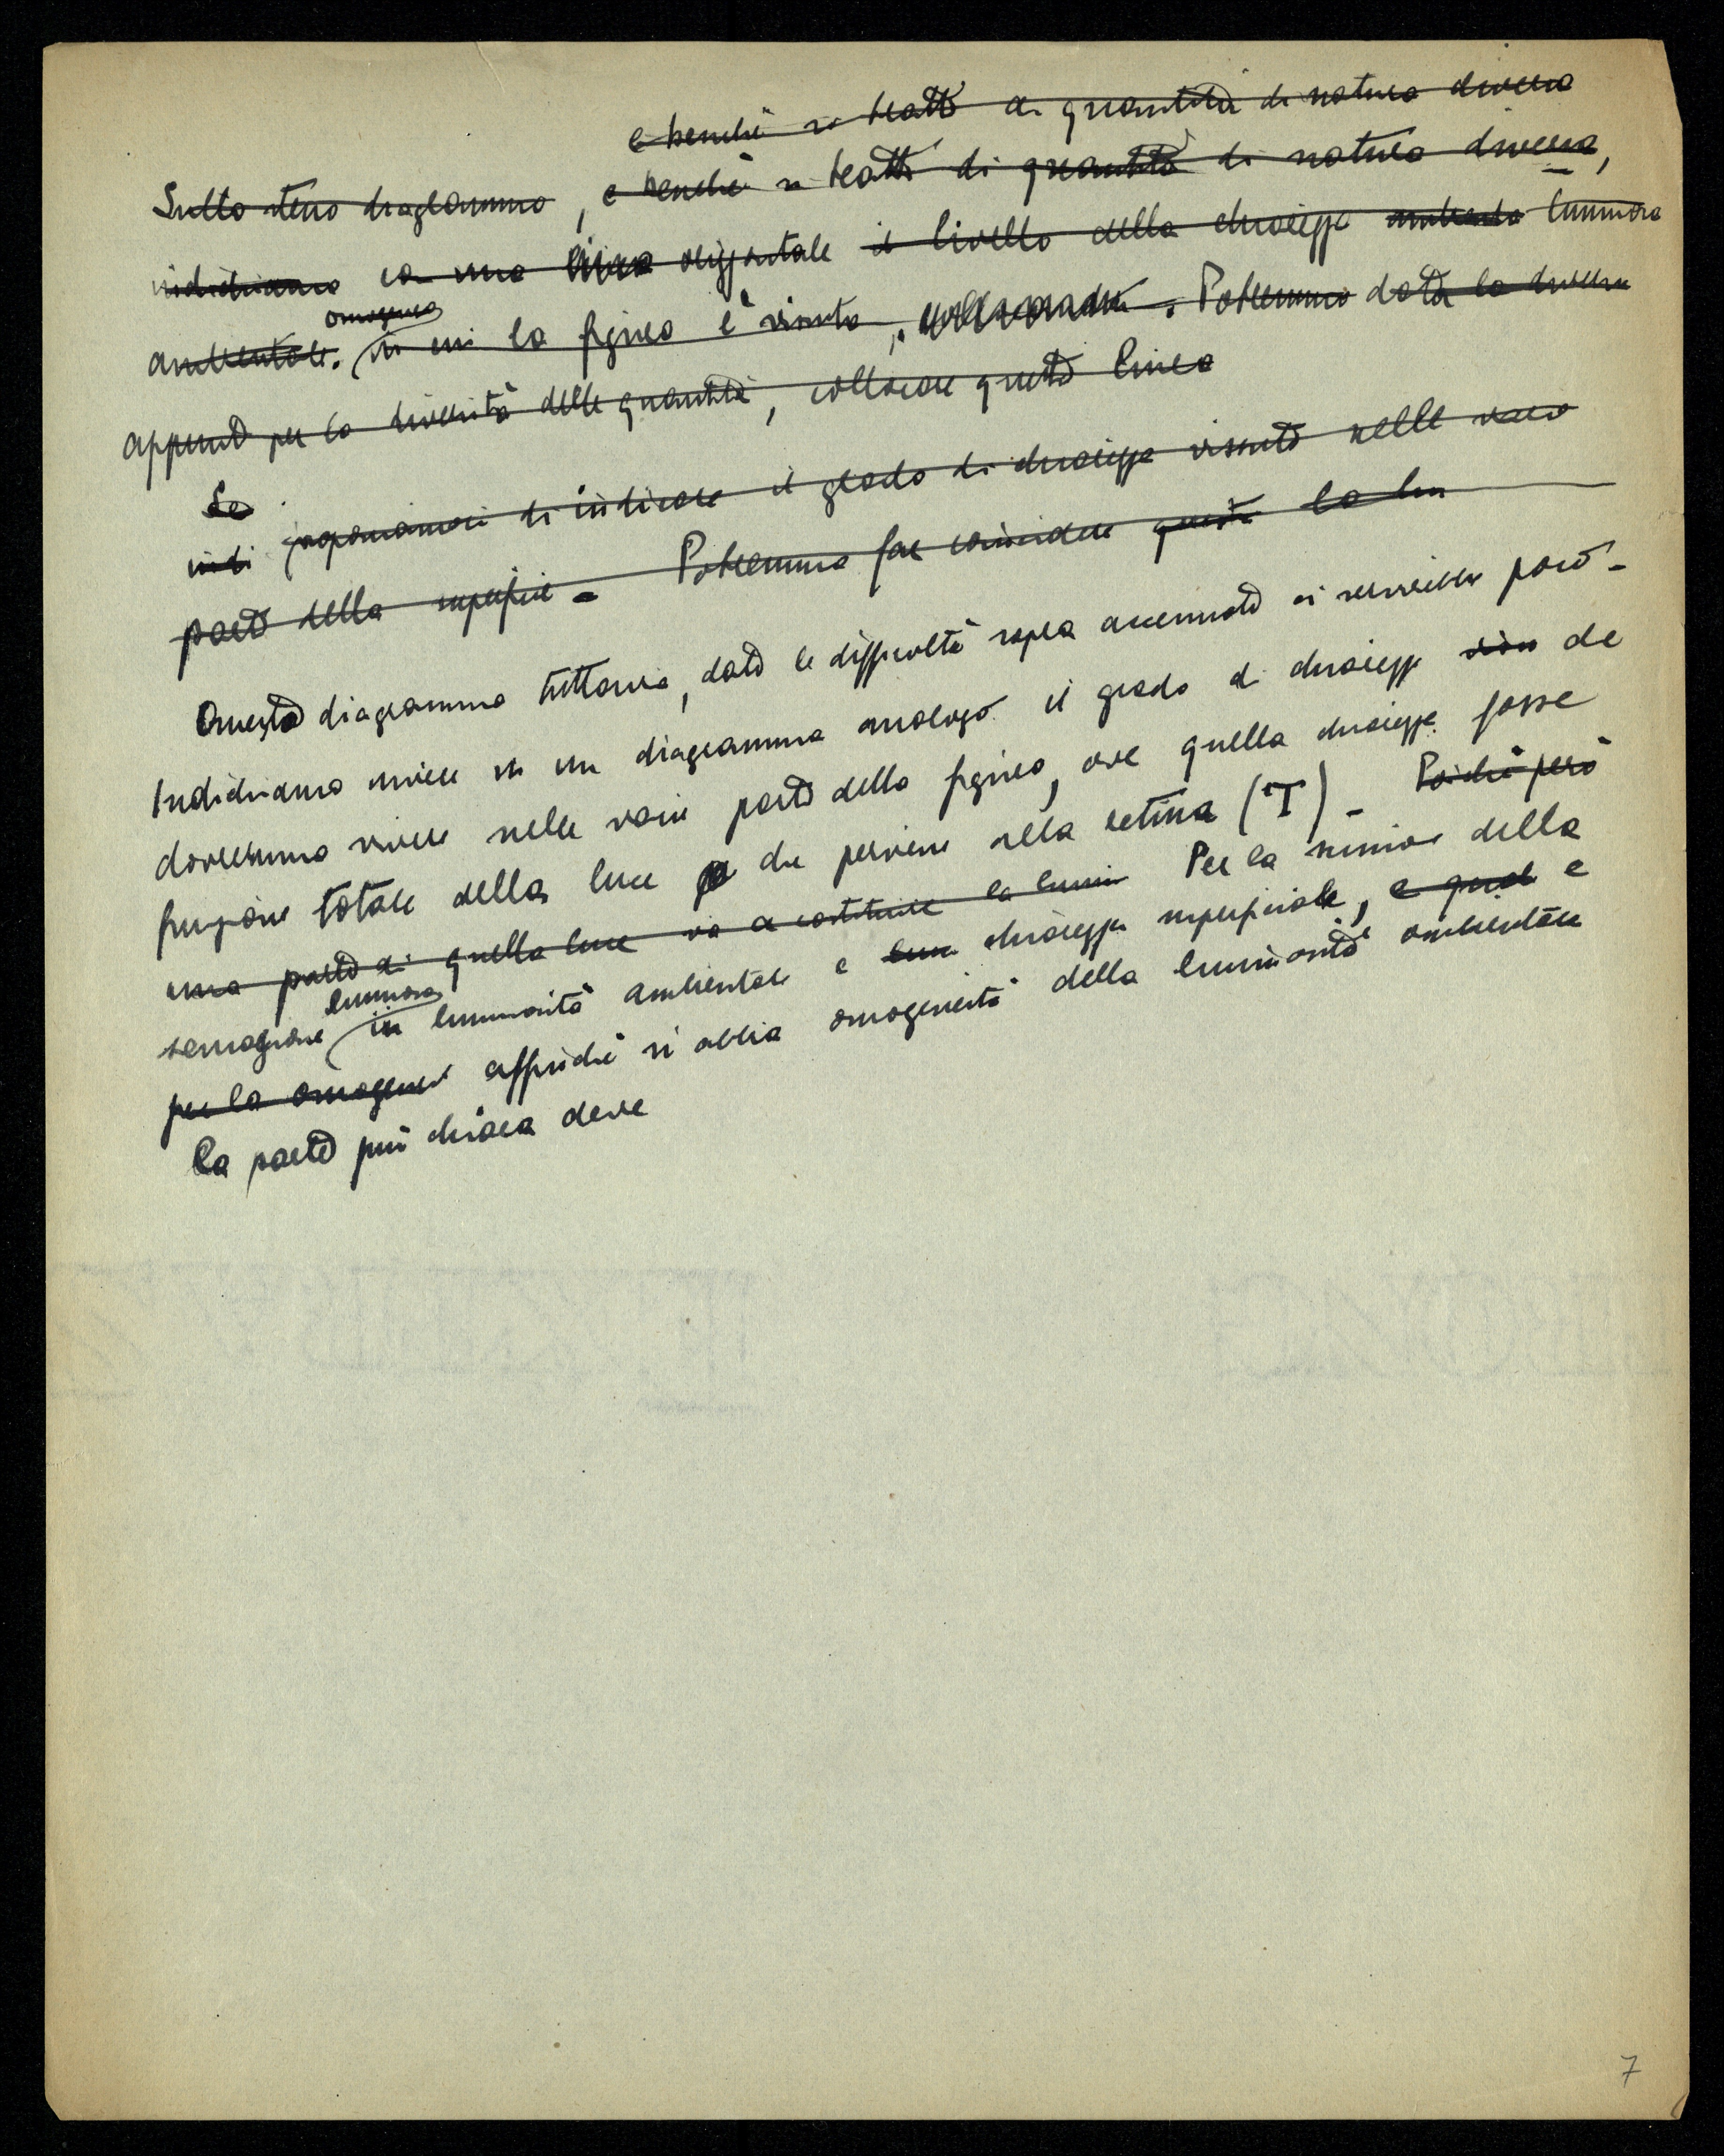 e benché si tratti di quantità di natura diversa
Sullo stesso diagramma, e benché si tratti di quantità di natura diversa,
indichiamo con una linea orizzontale il livello della chiarezza ambienta luminosa
omogenea
ambientale. in cui la figura è vissuta, . Potremmo data la diversa
appunto per la diversità delle quantità, collocare questa linea
Se
indi proponiamoci di indicare il grado di chiarezza vissuto nelle varie
parti della superficie - Potremmo far coincidere questa la lum
Questo diagramma tuttavia, data le difficoltà sopra accennate ci servirebbe poco -
Indichiamo invece in un diagramma analogo il grado di chiarezza che
dovremmo vivere nelle varie parti della figura, ove quella chiarezza fosse
funzione totale della luce che perviene alla retina (T) - Poiché però
una parte di quella luce va a costituire la lumin Per la scissione della
luminosa
sensazione in luminosità ambientale e chiarezza superficiale, e quindi e
per la omogenei affinché si abbia omogeneità della luminosità ambientale
la parte più chiara deve
7